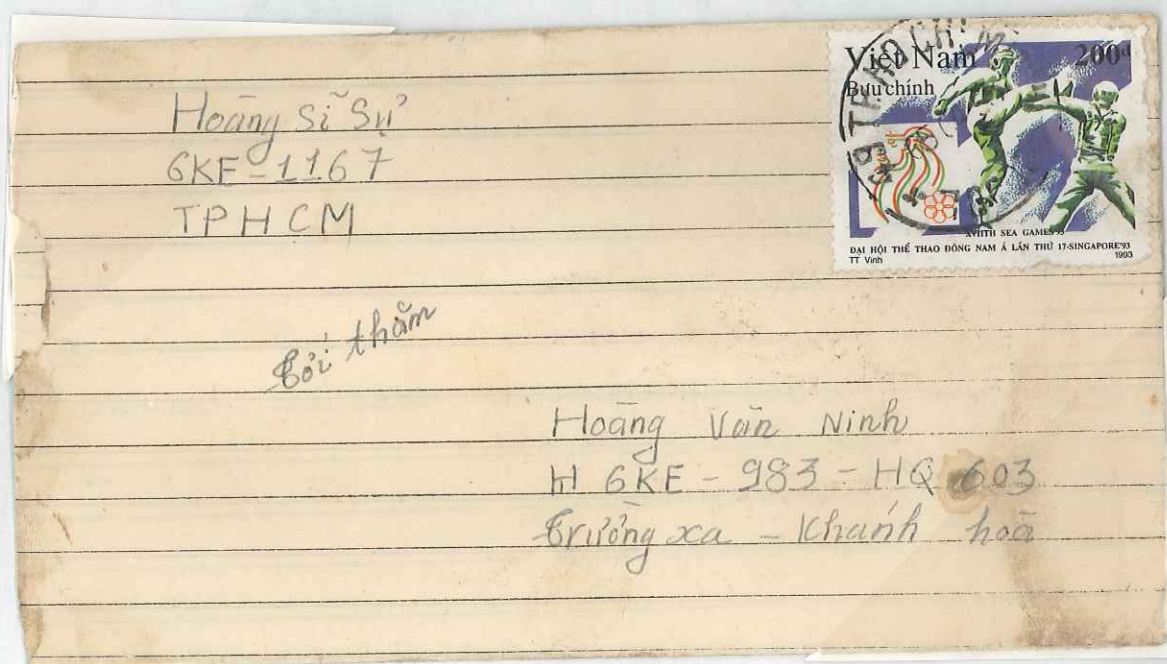 Hoàng Sĩ Sự
6KE-1167
TPHCM
Việt Nam 200đ
Bưu chính
XVIITH SEA GAMES'93
ĐẠI HỘI THỂ THAO ĐÔNG NAM Á LẦN THỨ 17-SINGAPORE'93
TT Vinh 1993
Gởi thăm
Hoàng Văn Ninh
H 6KE - 983 - HQ 603
Trường xa - Khánh hoà